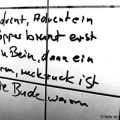 dvent, Advent ein
öpper kommt erst
n Bein, dann ein
rm, ruckzuck ist
ie Bude warm